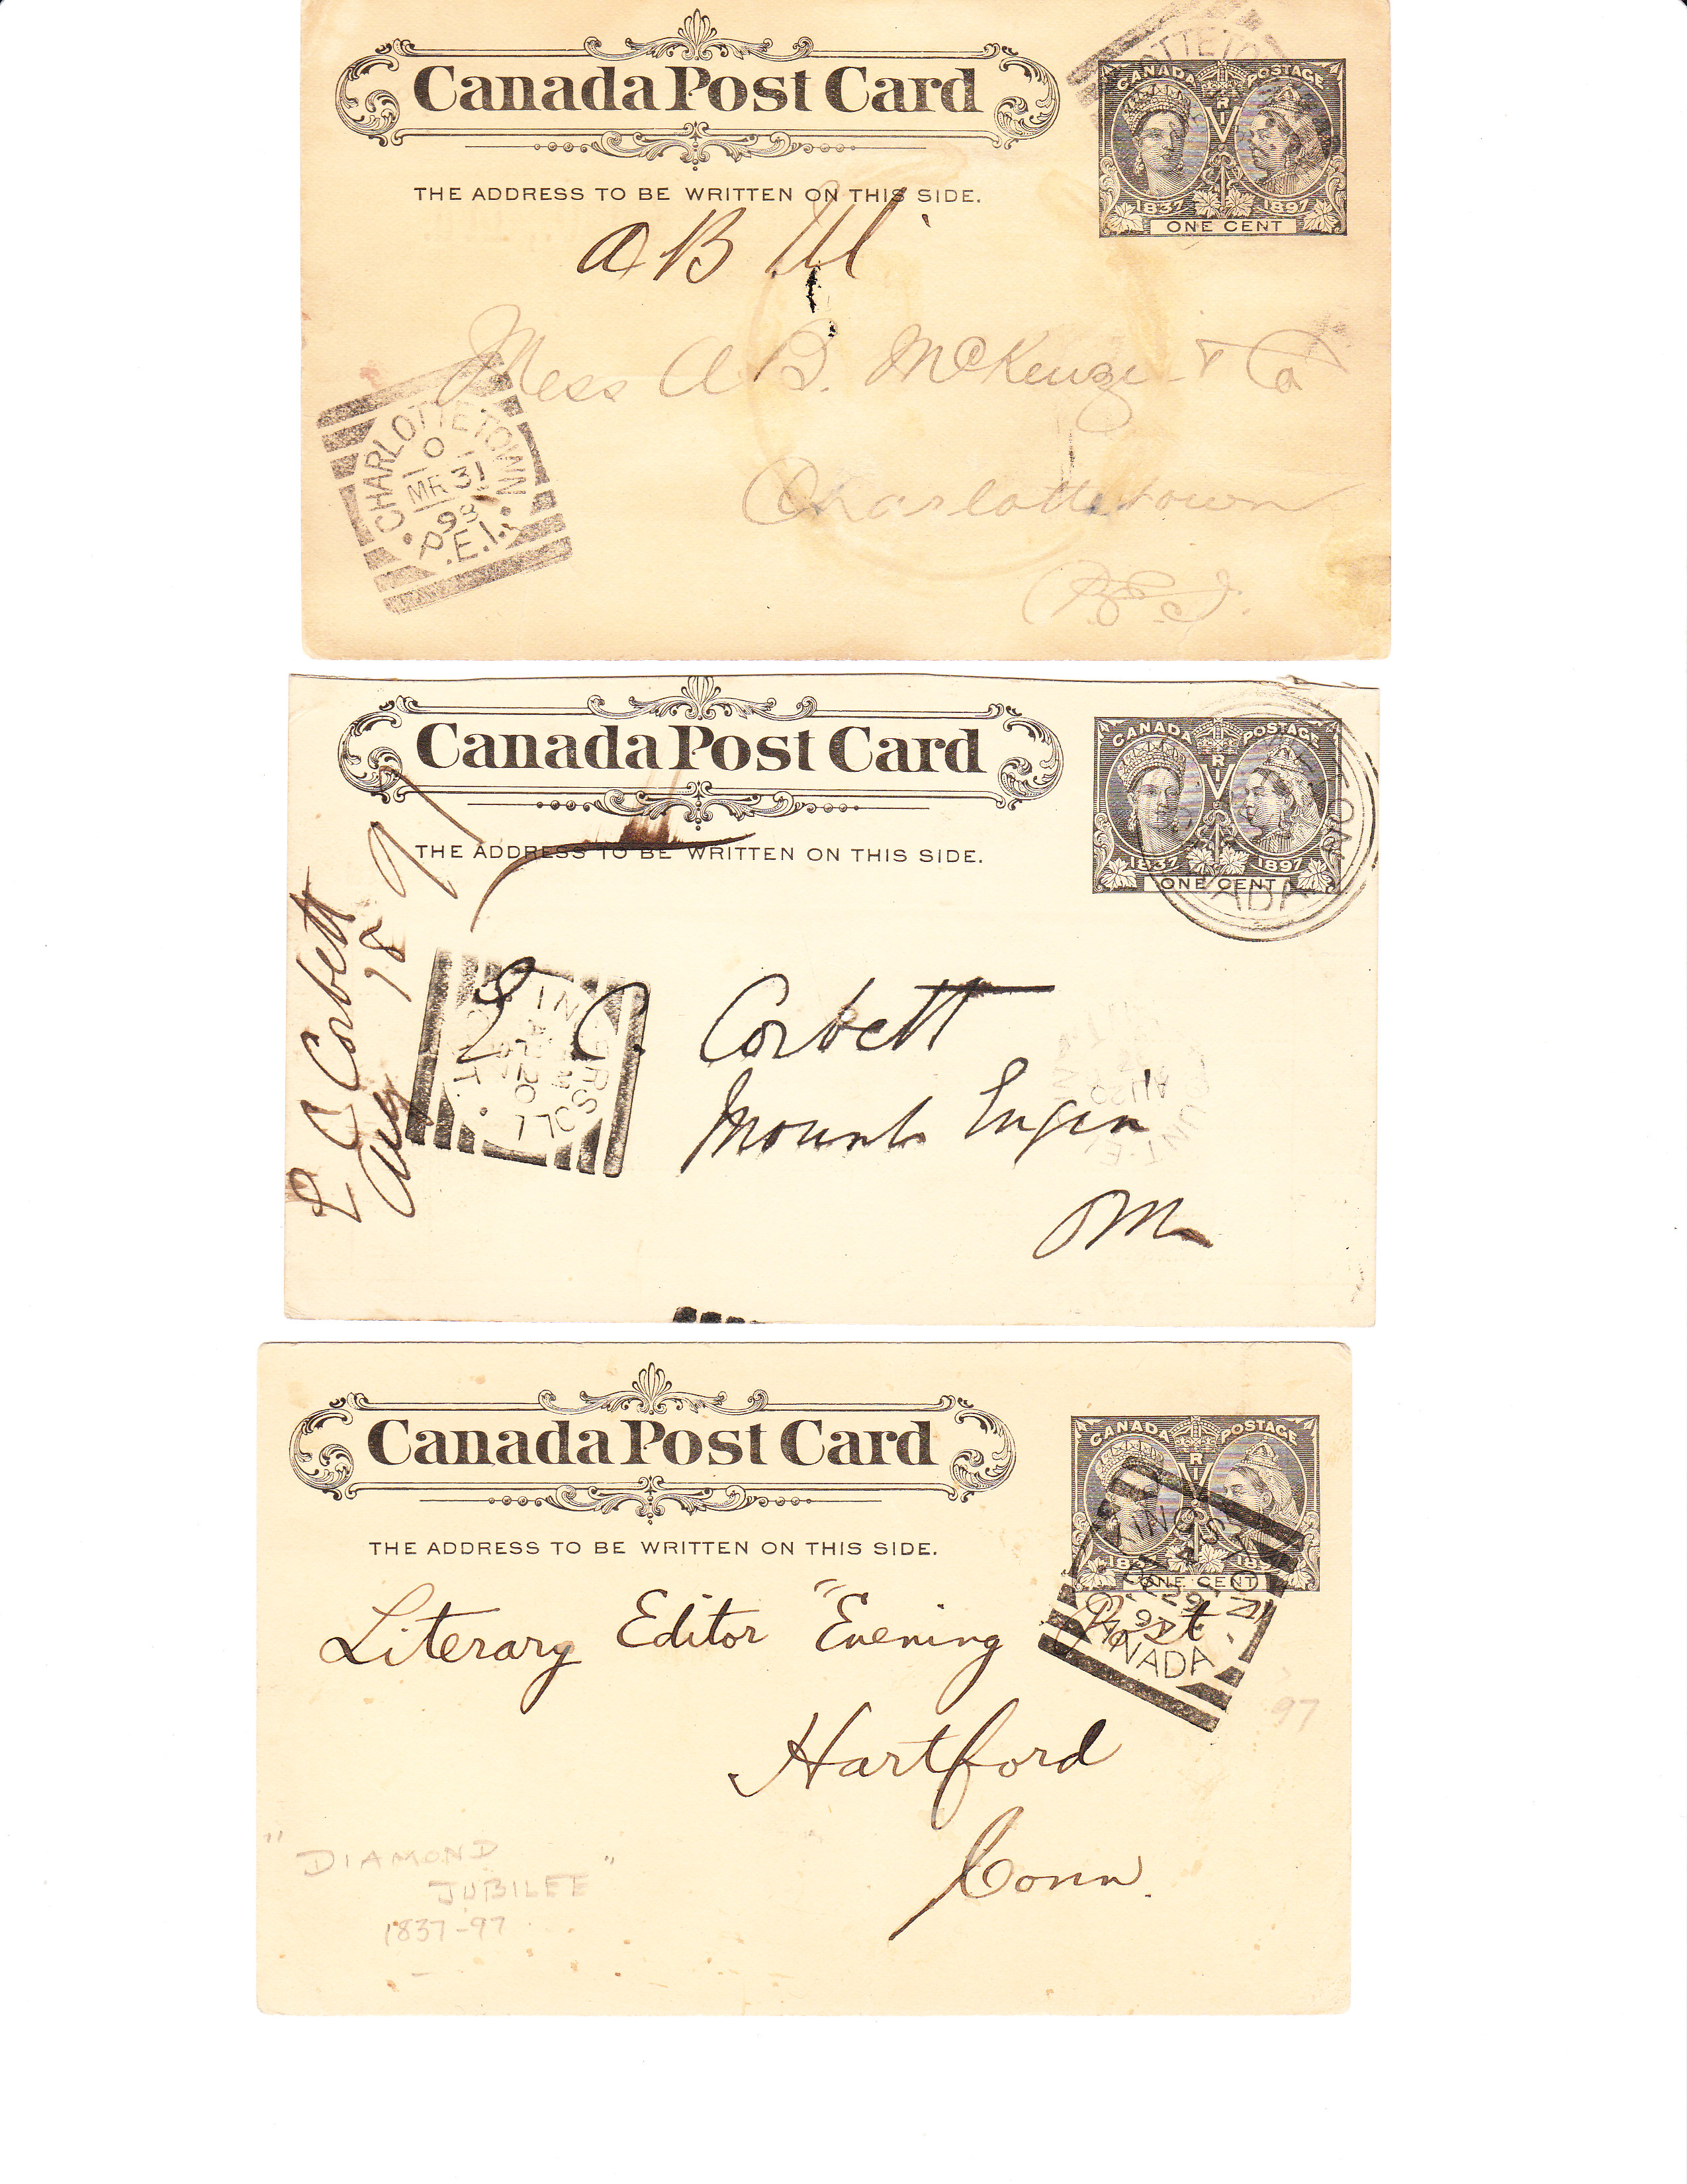 Canada Post Card
CANADA POSTAGE
V R I
1837 1897
ONE CENT
THE ADDRESS TO BE WRITTEN ON THIS SIDE.
A B
Mess A B. McKenzie & Co
Charlottetown
P.E.I.
CHARLOTTETOWN
O
MR 31
98
P.E.I.
Canada Post Card
CANADA POSTAGE
V R I
1837 1897
ONE CENT
THE ADDRESS TO BE WRITTEN ON THIS SIDE.
C Corbett
Mount
C Corbett
Aug 18 97
INGERSOLL
ONT.
20
Canada Post Card
CANADA POSTAGE
V R I
1837 1897
ONE CENT
THE ADDRESS TO BE WRITTEN ON THIS SIDE.
Literary Editor "Evening Post
Hartford
Conn.
KINGSTON
29
97
CANADA
97
"DIAMOND
JUBILEE"
1837-97